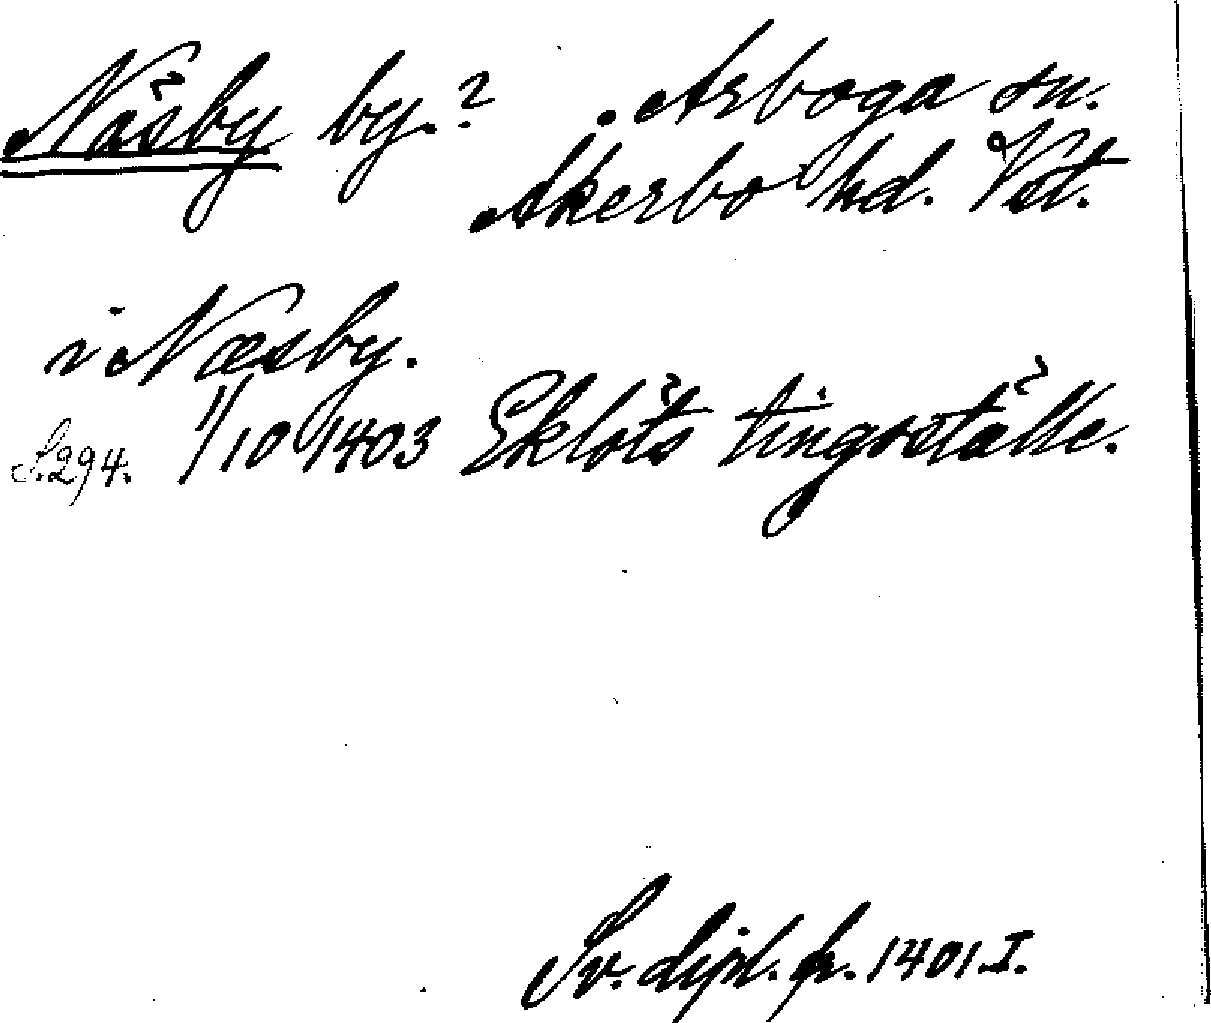 Näsby by.? Arboga sn.
Åkerbo hd. Vst.
i Næsby.
S. 294. 1/10 1403 Eklöts tingställe.
Sv. dipl. fr. 1401. I.